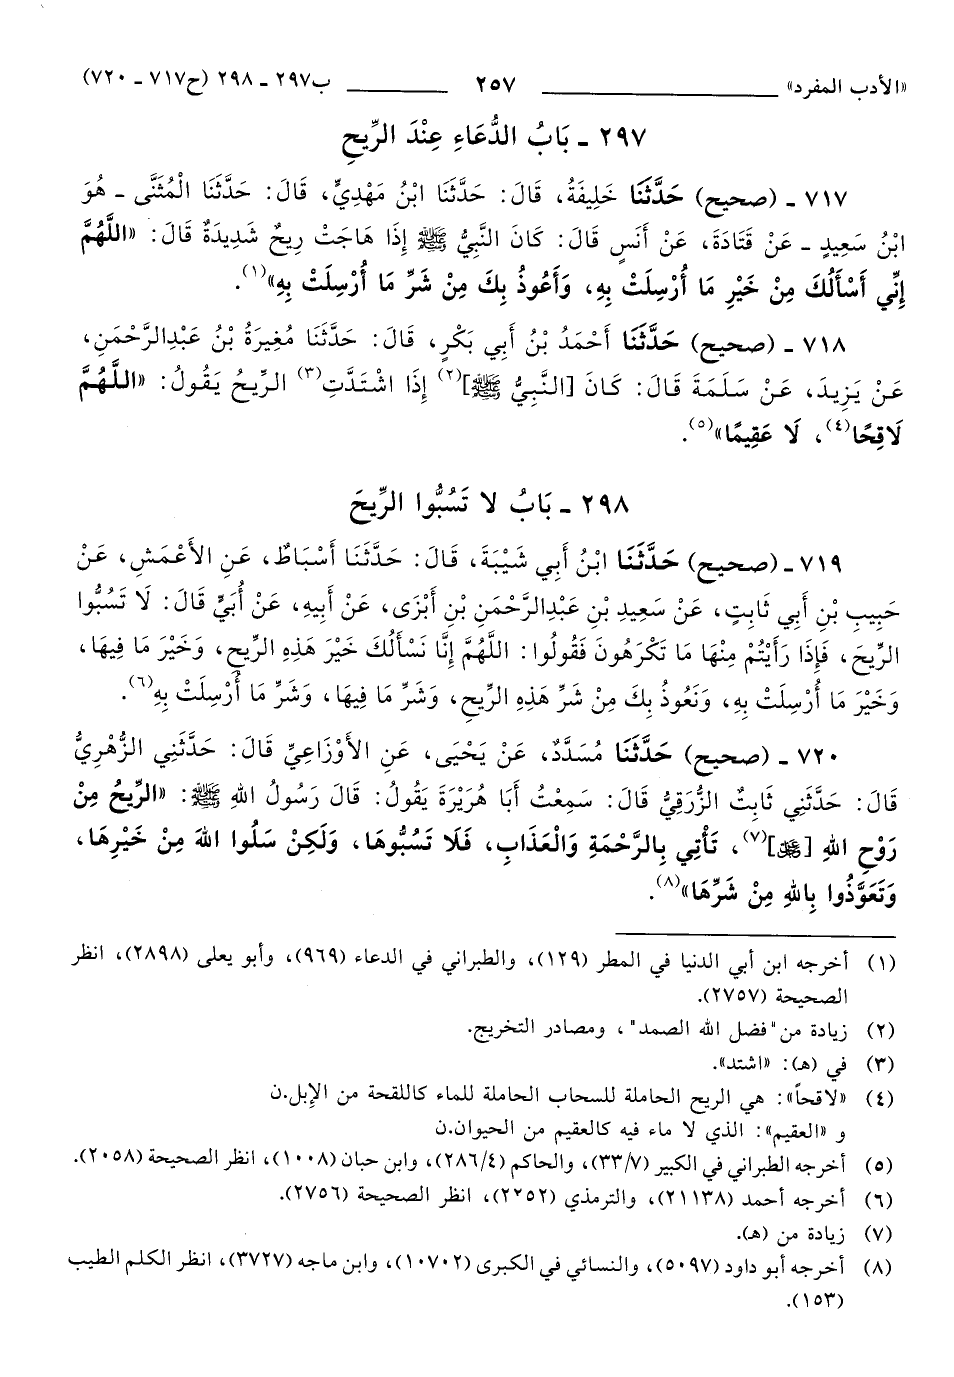 «الأدب المفرد» ٢٥٧ ب٢٩٧ ـ ٢٩٨ (ح٧١٧ ـ ٧٢٠)
٢٩٧ ـ بَابُ الدُّعَاءِ عِنْدَ الرِّيحِ
٧١٧ ـ (صحيح) حَدَّثَنَا خَلِيفَةُ، قَالَ: حَدَّثَنَا ابْنُ مَهْدِيٍّ، قَالَ: حَدَّثَنَا الْمُثَنَّى ـ هُوَ
ابْنُ سَعِيدٍ ـ عَنْ قَتَادَةَ، عَنْ أَنَسٍ قَالَ: كَانَ النَّبِيُّ ﷺ إِذَا هَاجَتْ رِيحٌ شَدِيدَةٌ قَالَ: «اللَّهُمَّ
إِنِّي أَسْأَلُكَ مِنْ خَيْرِ مَا أُرْسِلَتْ بِهِ، وَأَعُوذُ بِكَ مِنْ شَرِّ مَا أُرْسِلَتْ بِهِ»(١).
٧١٨ ـ (صحيح) حَدَّثَنَا أَحْمَدُ بْنُ أَبِي بَكْرٍ، قَالَ: حَدَّثَنَا مُغِيرَةُ بْنُ عَبْدِالرَّحْمَنِ،
عَنْ يَزِيدَ، عَنْ سَلَمَةَ قَالَ: كَانَ [النَّبِيُّ ﷺ](٢) إِذَا اشْتَدَّتِ(٣) الرِّيحُ يَقُولُ: «اللَّهُمَّ
لَاقِحًا(٤)، لَا عَقِيمًا»(٥).
٢٩٨ ـ بَابُ لا تَسُبُّوا الرِّيحَ
٧١٩ ـ (صحيح) حَدَّثَنَا ابْنُ أَبِي شَيْبَةَ، قَالَ: حَدَّثَنَا أَسْبَاطٌ، عَنِ الأَعْمَشِ، عَنْ
حَبِيبِ بْنِ أَبِي ثَابِتٍ، عَنْ سَعِيدِ بْنِ عَبْدِالرَّحْمَنِ بْنِ أَبْزَى، عَنْ أَبِيهِ، عَنْ أُبَيٍّ قَالَ: لَا تَسُبُّوا
الرِّيحَ، فَإِذَا رَأَيْتُمْ مِنْهَا مَا تَكْرَهُونَ فَقُولُوا: اللَّهُمَّ إِنَّا نَسْأَلُكَ خَيْرَ هَذِهِ الرِّيحِ، وَخَيْرَ مَا فِيهَا،
وَخَيْرَ مَا أُرْسِلَتْ بِهِ، وَنَعُوذُ بِكَ مِنْ شَرِّ هَذِهِ الرِّيحِ، وَشَرِّ مَا فِيهَا، وَشَرِّ مَا أُرْسِلَتْ بِهِ(٦).
٧٢٠ ـ (صحيح) حَدَّثَنَا مُسَدَّدٌ، عَنْ يَحْيَى، عَنِ الأَوْزَاعِيِّ قَالَ: حَدَّثَنِي الزُّهْرِيُّ
قَالَ: حَدَّثَنِي ثَابِتٌ الزُّرَقِيُّ قَالَ: سَمِعْتُ أَبَا هُرَيْرَةَ يَقُولُ: قَالَ رَسُولُ اللهِ ﷺ: «الرِّيحُ مِنْ
رَوْحِ اللهِ [ﷻ](٧)، تَأْتِي بِالرَّحْمَةِ وَالْعَذَابِ، فَلَا تَسُبُّوهَا، وَلَكِنْ سَلُوا اللهَ مِنْ خَيْرِهَا،
وَتَعَوَّذُوا بِاللهِ مِنْ شَرِّهَا»(٨).
(١) أخرجه ابن أبي الدنيا في المطر (١٢٩)، والطبراني في الدعاء (٩٦٩)، وأبو يعلى (٢٨٩٨)، انظر
الصحيحة (٢٧٥٧).
(٢) زيادة من "فضل الله الصمد"، ومصادر التخريج.
(٣) في (هـ): «اشتد».
(٤) «لاقحاً»: هي الريح الحاملة للسحاب الحاملة للماء كاللقحة من الإبل.ن
و «العقيم»: الذي لا ماء فيه كالعقيم من الحيوان.ن
(٥) أخرجه الطبراني في الكبير (٣٣/٧)، والحاكم (٢٨٦/٤)، وابن حبان (١٠٠٨)، انظر الصحيحة (٢٠٥٨).
(٦) أخرجه أحمد (٢١١٣٨)، والترمذي (٢٢٥٢)، انظر الصحيحة (٢٧٥٦).
(٧) زيادة من (هـ).
(٨) أخرجه أبو داود (٥٠٩٧)، والنسائي في الكبرى (١٠٧٠٢)، وابن ماجه (٣٧٢٧)، انظر الكلم الطيب
(١٥٣).